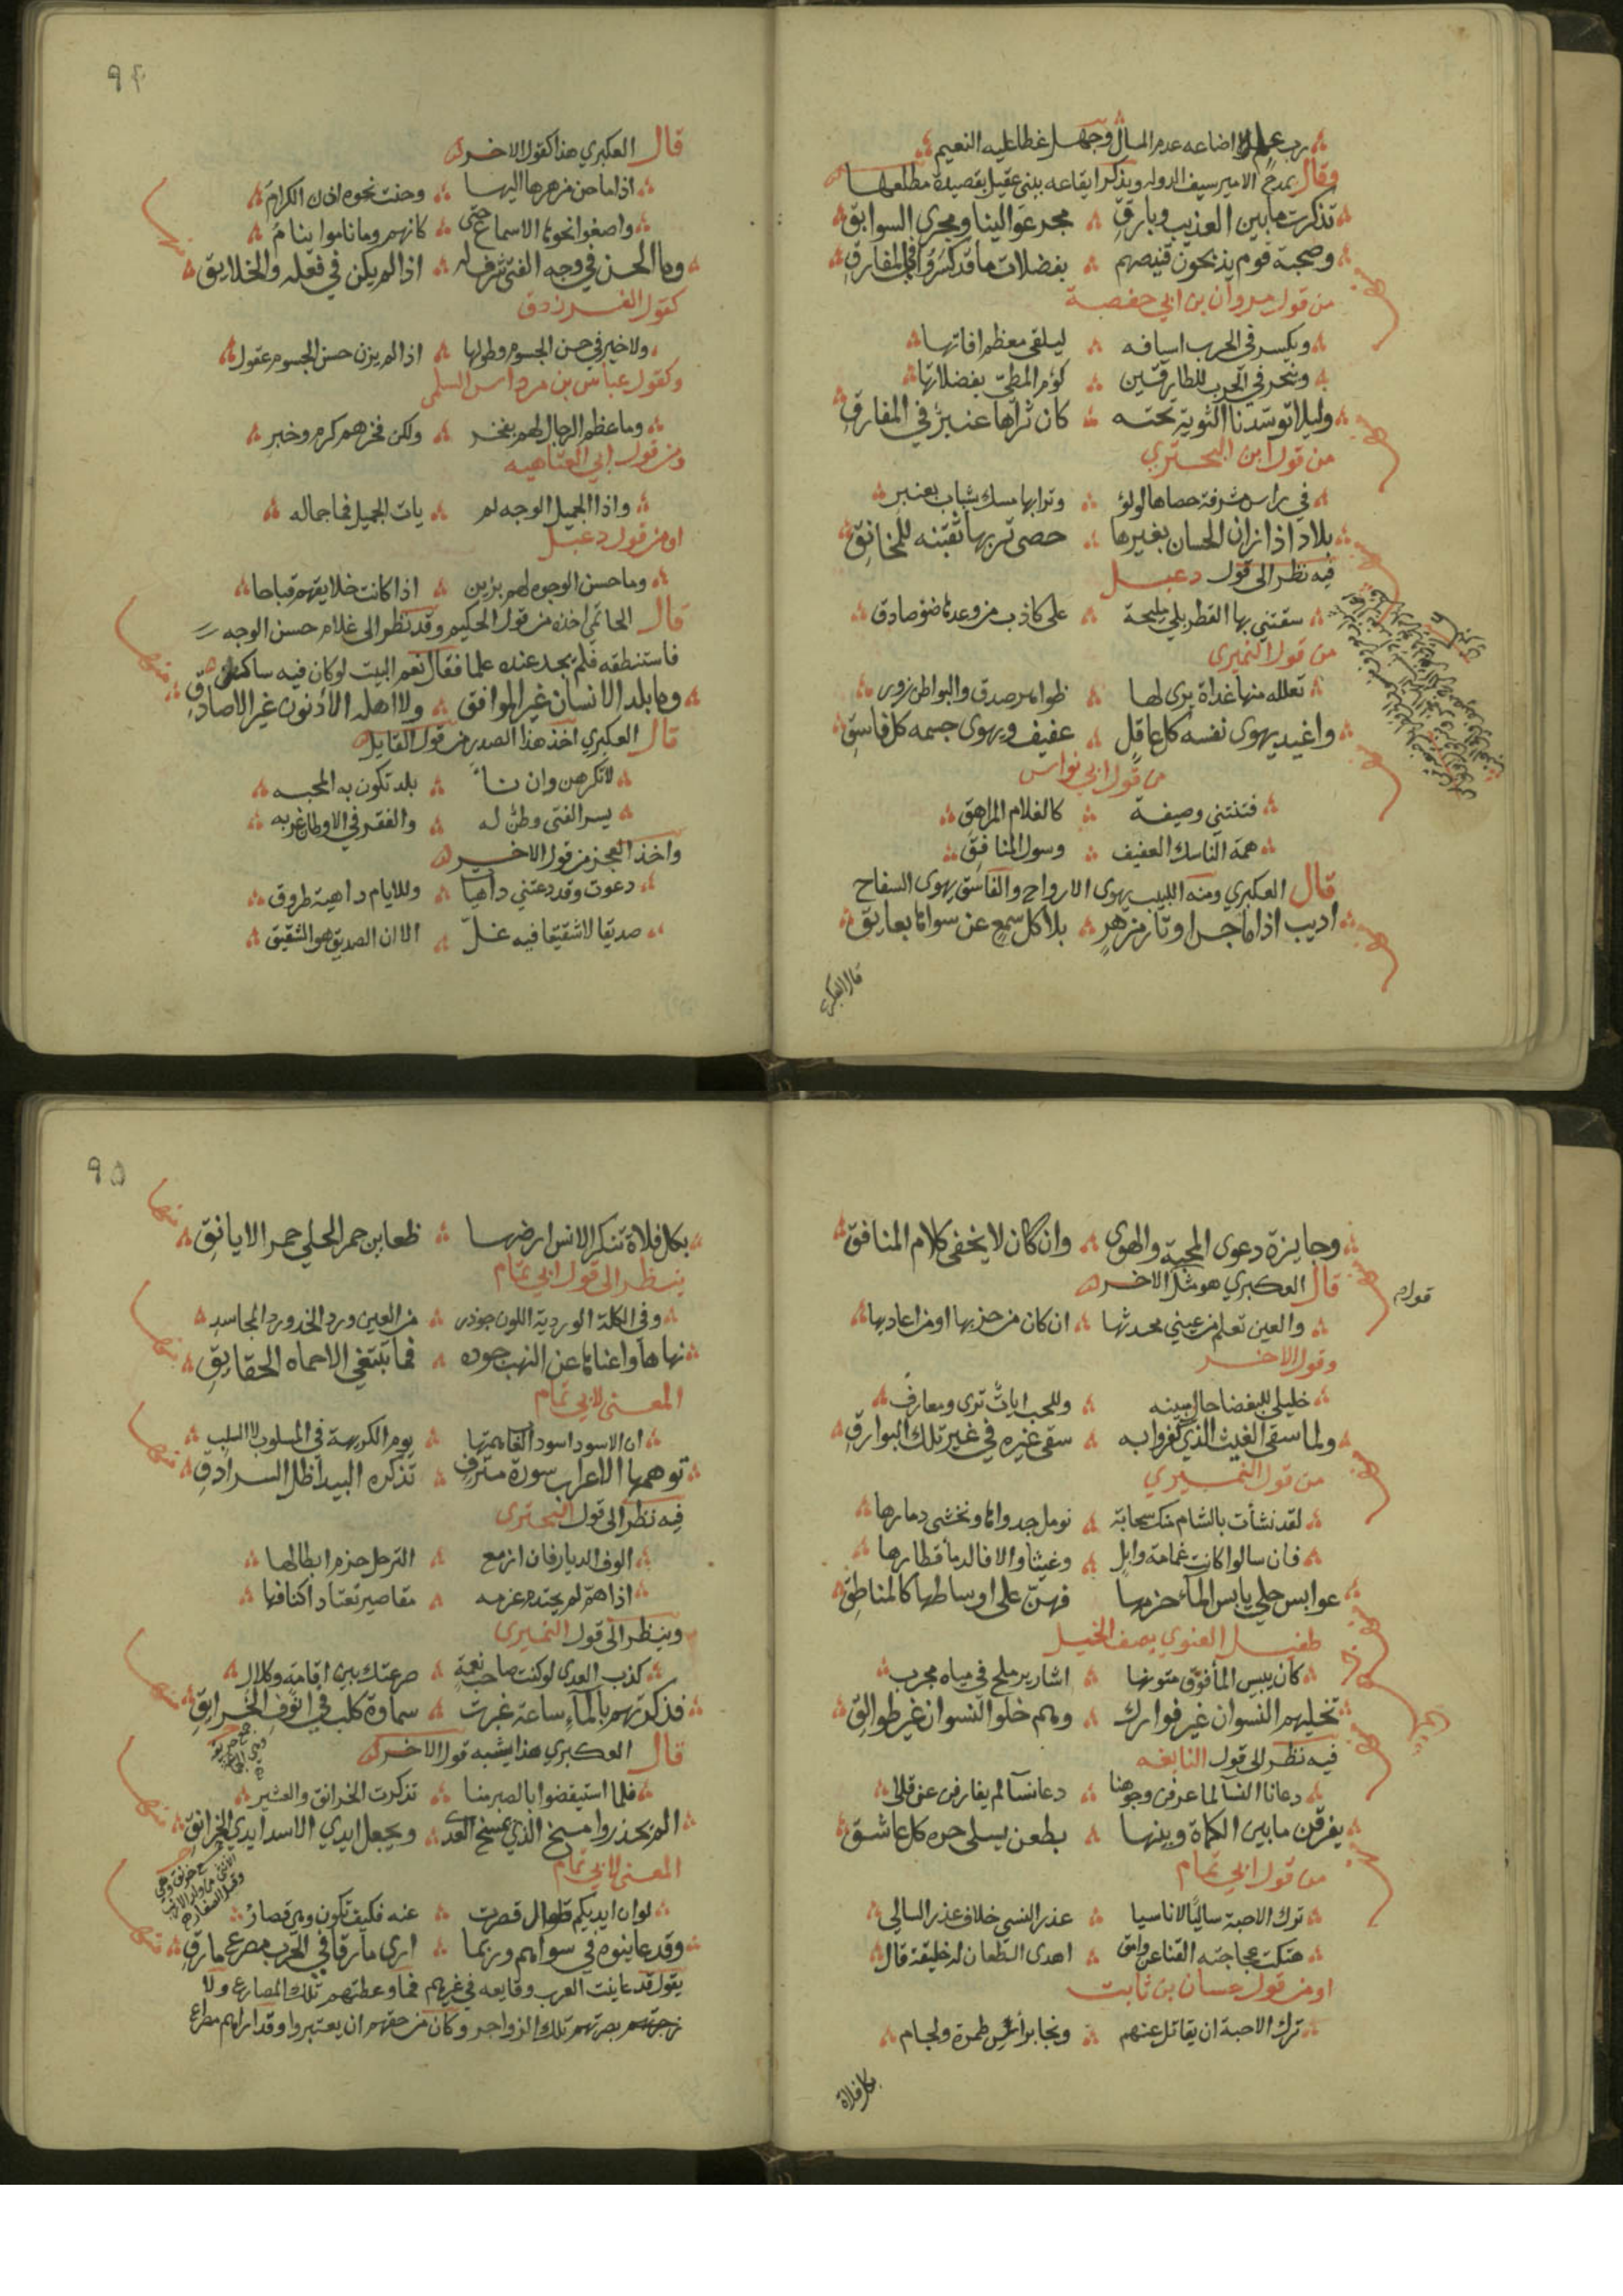 رب علم اضاعه عدم المال وجهل غطا عليه النعيم
وقال يمدح الامير سيف الدوله ويذكر ايقاعه ببني عقيل بقصيدة مطلعها
تذكرت ما بين العذيب وبارق مجر عوالينا ومجرى السوابق
وصحبة قوم يذبحون قنيصهم بفضلات ما قد كسروا في المفارق
من قول مروان بن ابي حفصة
ويكسر في الحرب اسيافه ليلقى معظم افاتها
وينحر في الجرب للطارقين كوم المطي بفضلاتها
وليلا توسدنا الثوية تحته كان ثراها عنبر في المفارق
من قول ابن البحتري
في راس مشرفة حصاها لولؤ وترابها مسك يشاب بعنبر
بلاد اذا زان الحسان بغيرها حصى تربها ثقبنه للمخانق
فيه نظر الى قول دعبل
سقتني بها القطربلي مليحة على كاذب من وعدها ضوء صادق
من قول النميري
تعلله منها غداة يرى لها ظواهر صدق والبواطن زور
واغيد يهوى نفسه كل عاقل عفيف ويهوى جسمه كل فاسق
من قول ابي نواس
فتنتني وصيفة كالغلام المراهق
همة الناسك العفيف وسول المنافق
قال العكبري ومنه اللبيب يهوى الارواح والفاسق يهوى السفاح
اديب اذا ما جس اوتار مزهر بلا كل سمع عن سواها بعايق
قال العكبري
٩٤
قال العكبري هذا كقول الاخر
اذا ما حن مزهرها اليها وحنت نحوه اذن الكرام
واصغوا نحوها الاسماع حتى كانهم وما ناموا ينام
وما الحسن في وجه الفتى شرف له اذا لم يكن في فعله والخلايق
كقول الفرزدق
ولا خير في حسن الجسوم وطولها اذا لم يزن حسن الجسوم عقول
وكقول عباس بن مرداس السلمي
وما عظم الرجال لهم بفخر ولكن فخرهم كرم وخير
ومن قول ابي العتاهيه
واذا الجميل الوجه لم يات الجميل فما جماله
او من قول دعبل
وما حسن الوجوه لهم بزين اذا كانت خلايقهم قباحا
قال الحاتمي اخذه من قول الحكيم وقد نظر الى غلام حسن الوجه
فاستنطقه فلم يجد عنده علما فقال نعم البيت لو كان فيه ساكن
وما بلد الانسان غير الموافق ولا اهله الادنون غير الاصادق
قال العكبري اخذ هذا الصدر من قول القايل
لا تكرهن وان نأ بلد تكون به المحبه
يسر الفتى وطن له والفقر في الاوطان غربه
واخذ العجز من قول الاخر
دعوت وقد دعتني داهيا وللايام داهية طروق
صديقا لا شقيقا فيه غل الا ان الصديق هو الشقيق
وجايزة دعوى المحبة والهوى وان كان لا يخفى كلام المنافق
قال العكبري هو مثل الاخر
والعين تعلم من عيني محدثها ان كان من حزبها او من اعاديها
وقول الاخر
خليلي للبغضا حال مبينه وللحب ايات ترى ومعارف
ولما سقى الغيث الذي كفروا به سقى غيره في غير تلك البوارق
من قول النميري
لقد نشأت بالشام منك سحابة نومل جدواها ونخشى دمارها
فان سالوا كانت غمامة وابل وغيثا والا فالدما قطارها
عوابس حلي يابس الماء حزمها فهن على اوساطها كالمناطق
طفيل الغنوي يصف الخيل
كان يبيس الماء فوق متونها اشارير ملح في مياه مجرب
تخليهم النسوان غير فوارك وهم خلوا النسوان غير طوالق
فيه نظر الى قول النابغه
دعانا النسا لما عرفن وجوهنا دعا نسآ لم يفارقن عن قلا
يفرقن ما بين الكماة وبينها بطعن يسلي حره كل عاشق
من قول ابي تمام
ترك الاحبة ساليا لا ناسيا عذر النسي خلاف عذر السالي
هتكت عجاجته القنا عن وامق اهدى الطعان له خليقة قال
او من قول حسان بن ثابت
ترك الاحبة ان يقاتل عنهم ونجا برأس طمرة ولجام
بكل فلاة
٩٥
بكل فلاة تنكر الانس ارضها ظعاين حمر الحلي حمر الايانق
ينظر الى قول ابي تمام
وفي الكلة الوردية اللون جوذر من العين ورد الخد ورد المجاسد
نهاها واغناها عن النهب جوده فما تبتغي الا حماه الحقايق
المعنى لابي تمام
ان الاسود اسود الغاب همتها يوم الكريهة في المسلوب لا السلب
توهمها الاعراب سورة مترف تذكره البيدا ظل السرادق
فيه نظر الى قول البحتري
الوف الديار فان ازمع الترحل حزم ابطالها
اذا هم لم يجتده عزمه مقاصير تعتاد اكنافها
وينظر الى قول النميري
كذب العدى لو كنت صاحب نعمة صرعتك بين اقامة وكلال
فذكرتهم بالماء ساعة غبرت سماوة كلب في انوف الخرانق
قال العكبري هذا يشبه قول الاخر
فلما استيقضوا بالصبر منا تذكرت الخرانق والعشير
الم يحذروا مسخ الذي يمسخ العدى ويجعل ايدي الاسد ايدي الخرانق
المعنى لابي تمام
لو ان ايديكم طوال قصرت عنه فكيف تكون وهي قصار
وقد عاينوه في سواهم وربما ارى مارقا في الحرب مصرع مارق
يقول قد عاينت العرب وقايعه في غيرهم فما وعظتهم تلك المصارع ولا
زجرتهم بصرتهم تلك الزواجر وكان من حقهم ان يعتبروا وقد اراهم مصارع